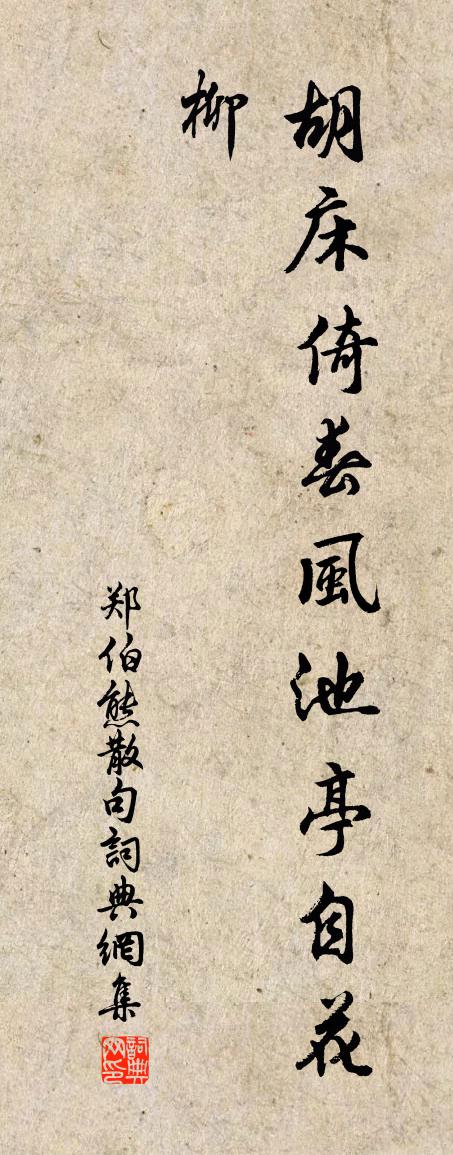 胡床倚春風池亭自花
柳
郑伯熊散句詞典網集
詞典网印